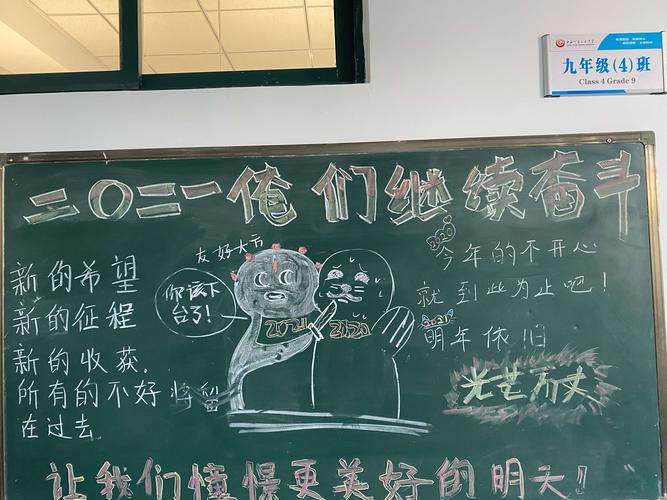 九年级(4)班
Class 4 Grade 9
二〇二一俺们继续奋斗
友好大方
你该下
台了!
2021
2020
新的希望
新的征程
新的收获.
所有的不好将留
在过去
2020
今年的不开心
就到此为止吧!
2021
明年依旧
光芒万丈
让我们憧憬更美好的明天!!